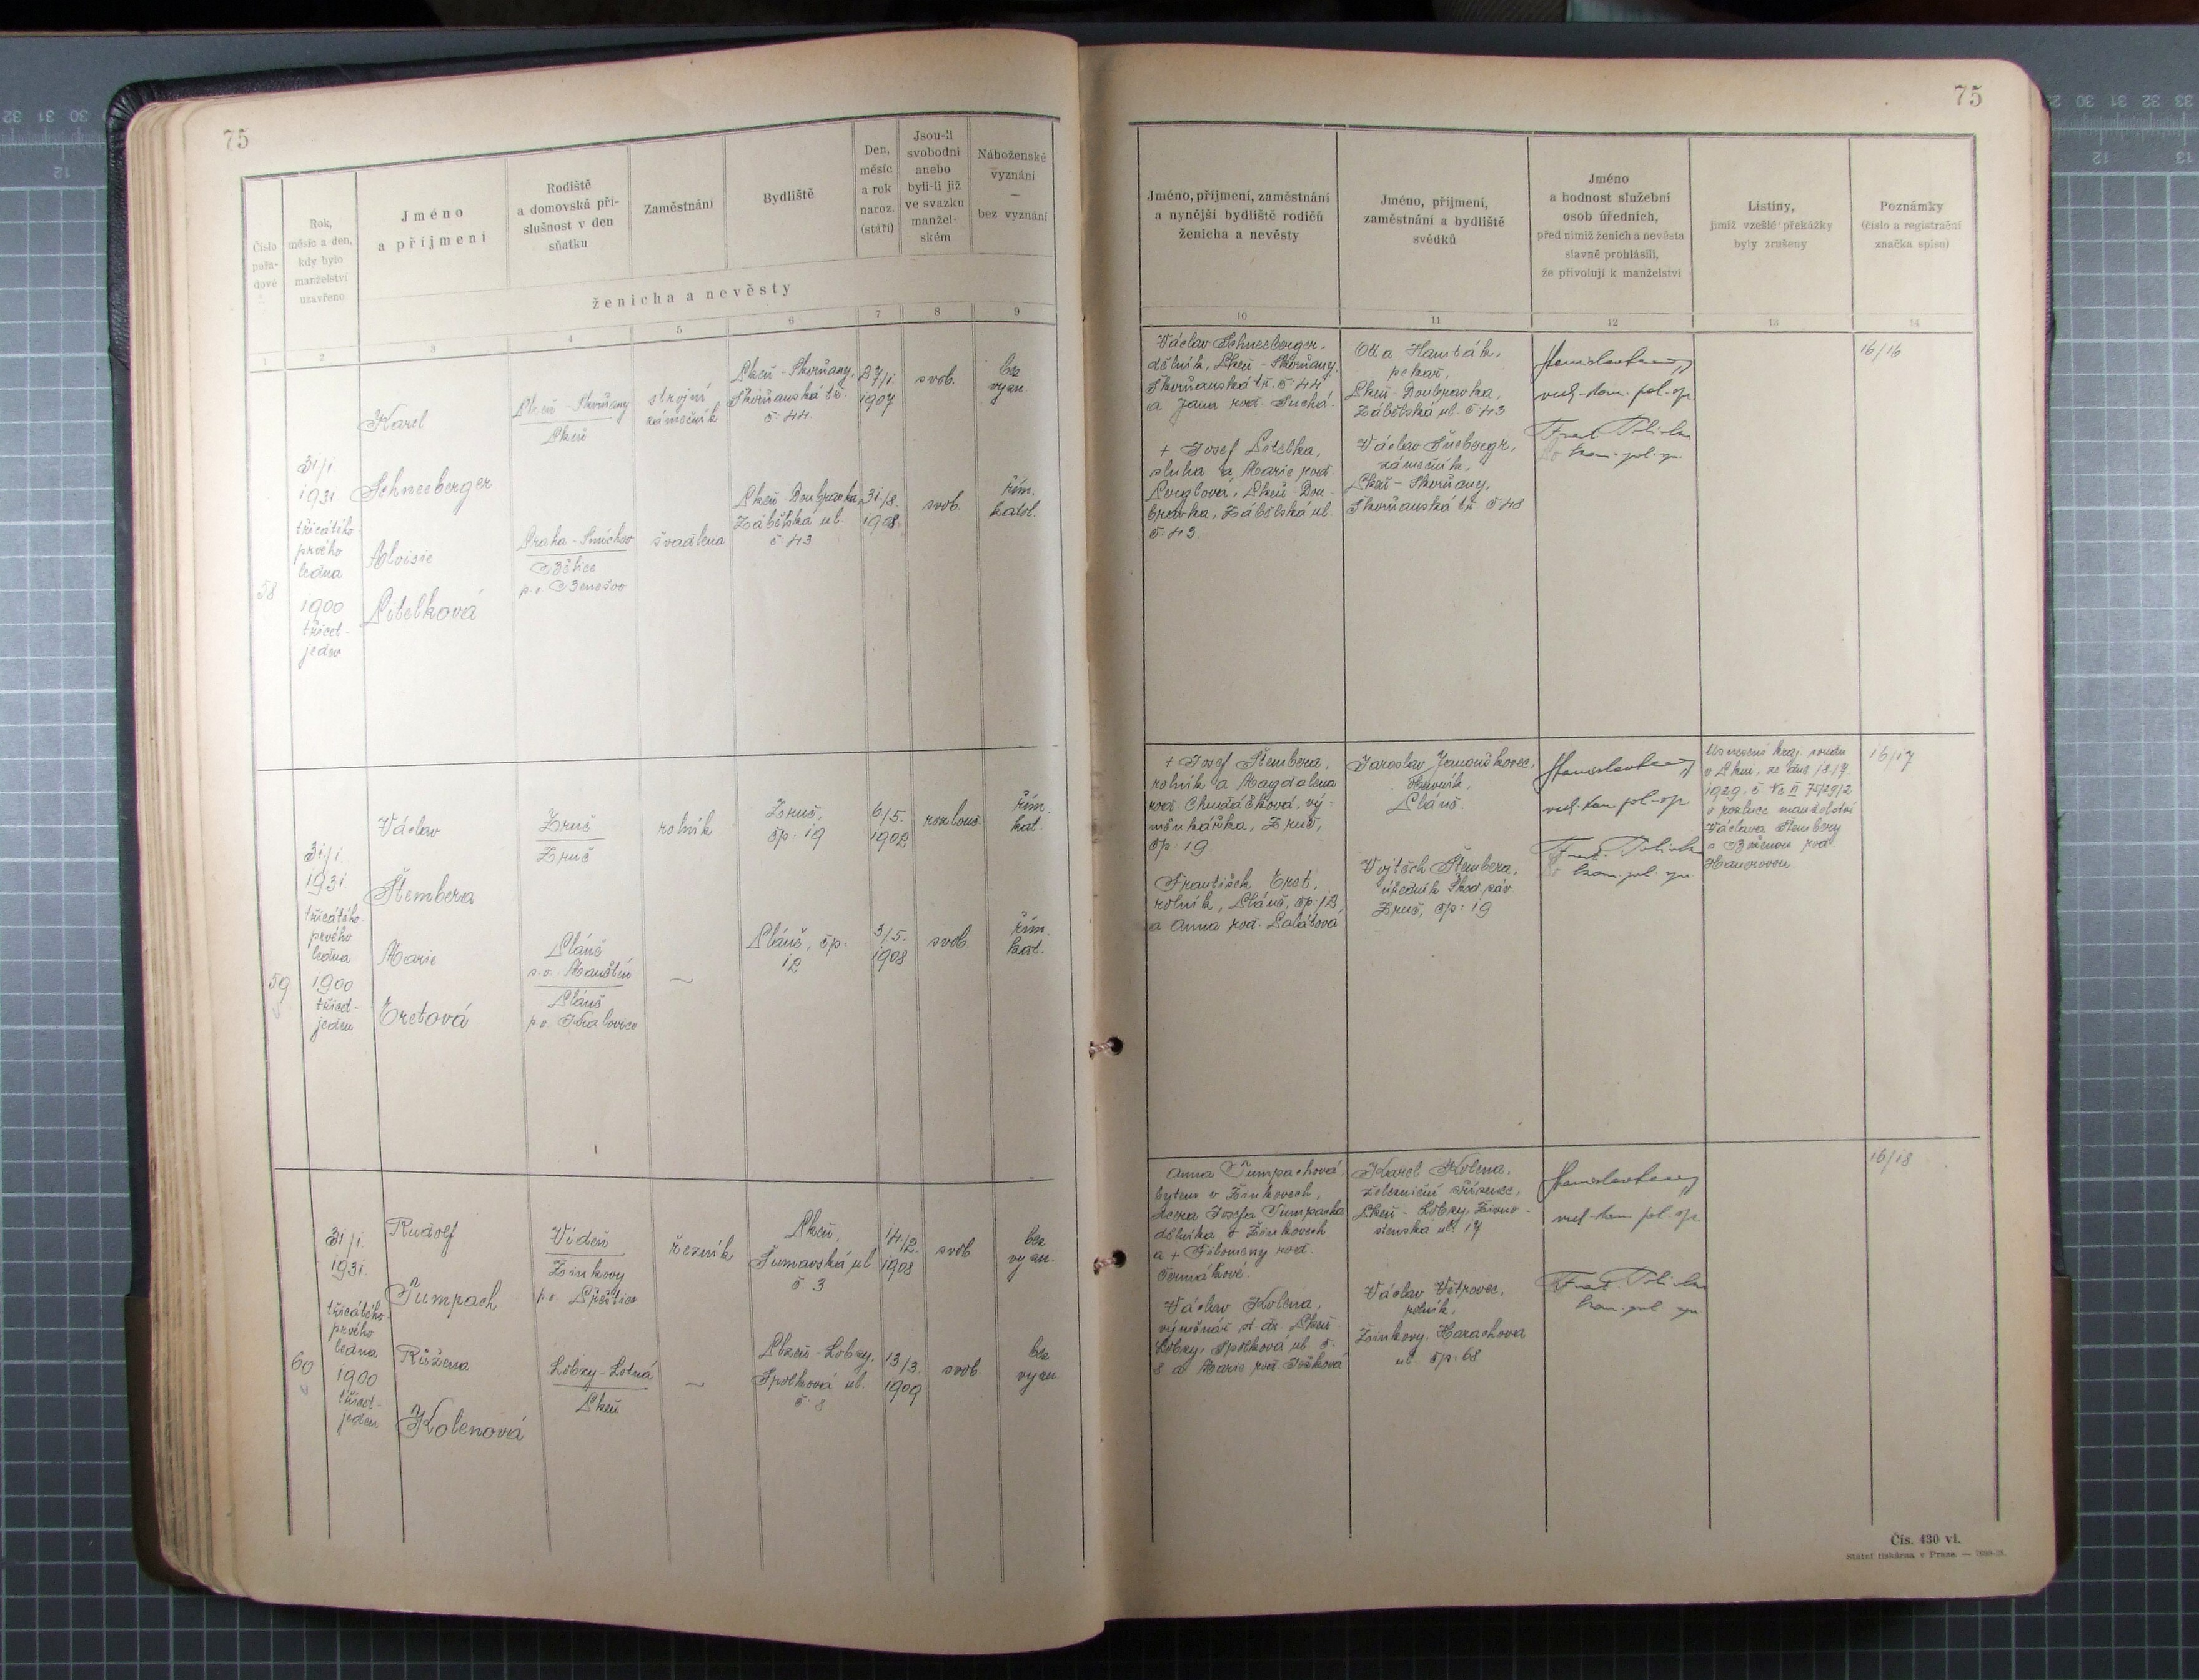 75
Číslo
pořa-
dové
Rok,
měsíc a den,
kdy bylo
manželství
uzavřeno
Jméno
a příjmení
Rodiště
a domovská pří-
slušnost v den
sňatku
Zaměstnání
Bydliště
Den,
měsíc
a rok
naroz.
(stáří)
Jsou-li
svobodni
anebo
byli-li již
ve svazku
manžel-
ském
Náboženské
vyznání
—
bez vyznání
ženicha a nevěsty
1 2 3 4 5 6 7 8 9
58
31/1.
1931
třicátého
prvého
ledna
1900
třicet-
jeden
Karel
Schneeberger
Plzeň - Skvrňany
Plzeň
strojní
zámečník
Plzeň - Skvrňany,
Skvrňanská tř.
č. 44.
27/1.
1907
svob.
bez
vyzn.
Aloisie
Pitelková
Praha - Smíchov
Bělice
p. o. Benešov
švadlena
Plzeň - Doubravka,
Zábělská ul.
č. 43
31/8.
1908.
svob.
řím.
katol.
59
31/1.
1931.
třicátého-
prvého
ledna
1900
třicet-
jeden
Václav
Štembera
Zruč
Zruč
rolník
Zruč,
čp: 19
6/5.
1902
rozlouč.
řím.
kat.
Marie
Eretová
Pláně
s. o. Manětín
Pláně
p. o. Kralovice
—
Pláně, čp.
12
3/5.
1908
svob.
řím.
kat.
60
31/1
1931.
třicátého
prvého
ledna
1900
třicet-
jeden
Rudolf
Tumpach
Vídeň
Žinkovy
p. o. Přeštice
řezník
Plzeň,
Šumavská ul.
č. 3
14/2.
1908
svob
bez
vyzn.
Růžena
Kolenová
Lobzy - Letná
Plzeň
—
Plzeň - Lobzy,
Spolková ul.
č. 8
13/3.
1909
svob.
bez
vyzn.
75
Jméno, příjmení, zaměstnání
a nynější bydliště rodičů
ženicha a nevěsty
Jméno, příjmení,
zaměstnání a bydliště
svědků
Jméno
a hodnost služební
osob úředních,
před nimiž ženich a nevěsta
slavně prohlásili,
že přivolují k manželství
Listiny,
jimiž vzešlé překážky
byly zrušeny
Poznámky
(číslo a registrační
značka spisu)
10 11 12 13 14
Václav Schneeberger,
dělník, Plzeň - Skvrňany,
Skvrňanská tř. č. 44
a Jana roz. Suchá.
+ Josef Pitelka,
sluha a Marie roz.
Perglová, Plzeň - Dou-
bravka, Zábělská ul.
č. 43.
Otta Hanzák,
pekař,
Plzeň - Doubravka,
Zábělská ul. č. 43
Václav Šneberger,
zámečník,
Plzeň - Skvrňany,
Skvrňanská tř. č. 48
16/16
+ Josef Štembera,
rolník a Magdalena
roz. Chudáčková, vý-
měnkářka, Zruč,
čp. 19.
František Eret,
rolník, Pláně, čp. 12,
a Anna roz. Salátová
Jaroslav Janouškovec,
Pláně.
Vojtěch Štembera,
úředník Škod. záv.
Zruč, čp: 19
Usnesení kraj. soudu
v Plzni, ze dne 18/7.
1929. č. Nc II 75/29/2
o rozluce manželství
Václava Štembery
s Boženou roz.
Hauerovou.
16/17
Anna Tumpachová,
bytem v Žinkovech,
dcera Josefa Tumpacha
dělníka v Žinkovech
a + Filomeny roz.
Čermákové.
Václav Kolena,
výměnář st. dr. Plzeň
Lobzy, Spolková ul. č.
8 a Marie roz. Ježková
Karel Kolena,
železniční zřízenec,
Plzeň - Lobzy, Živno-
stenská ul. 17
Václav Větrovec,
rolník,
Žinkovy, Harachova
ul. čp. 68
16/18
Čís. 430 vi.
Státní tiskárna v Praze. —